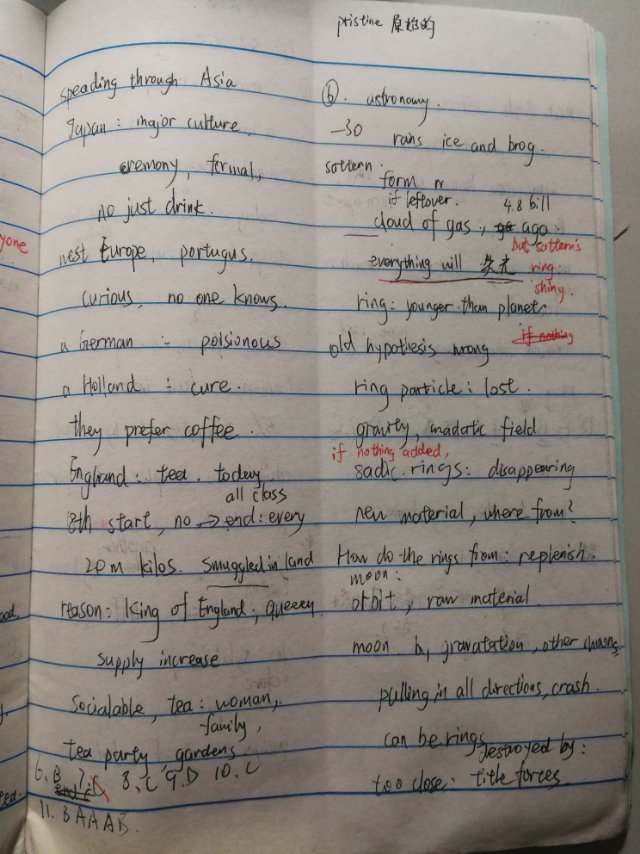 pristine 原始的
speading through Asia
Japan: major culture,
ceremony, formal,
no just drink.
west Europe, portugus.
curious, no one knows.
a German : poisionous
a Holland : cure.
they prefer coffee.
England: tea. today
all class
18th start, no → end: every
20 m kilos. smuggled in land
reason: King of England; queeey.
supply increase
Socialable, tea: woman,
family,
tea party, gardens
6. B 7. 8. C 9. D 10. C
11. B A A A B.
yone
ood
tea.
⑥. astronomy.
-30 rains ice and brog.
sottern.
form
if leftover. 4.8 bill
cloud of gas, ago.
everything will
but sottern's
ring
shiny.
ring: younger than planet
old hypothesis wrong
if nothing
ring particle: lost.
gravity, madatic field
if nothing added,
sadic rings: disappearing
new material, where from?
How do the rings from: replenish.
moon:
orbit, raw material
moon grawatation, other
pulling in all directions, crash.
can be rings
destroyed by:
too close: title forces